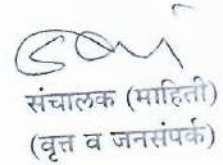 संचालक (माहिती)
(वृत्त व जनसंपर्क)